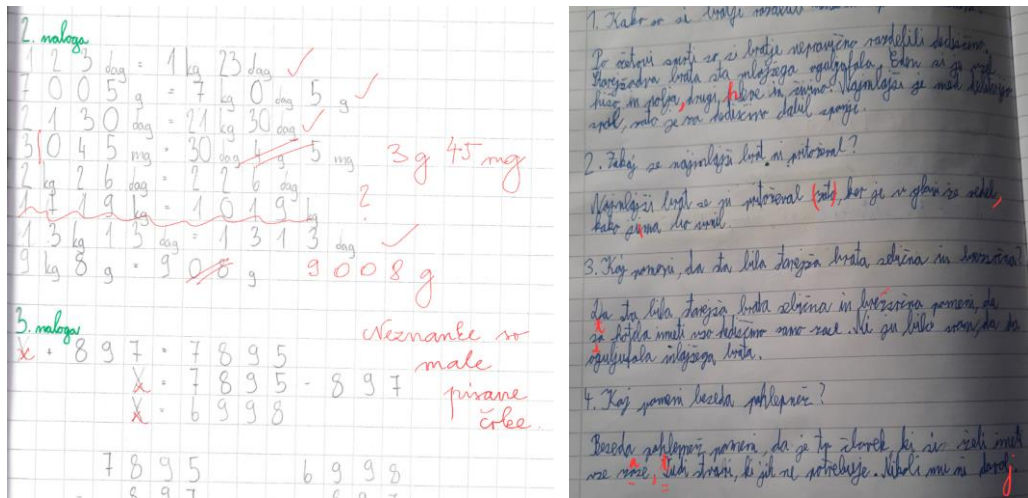 2. naloga
1 2 3 dag = 1 kg 23 dag ✓
7 0 0 5 g = 7 kg 0 dag 5 g ✓
2 1 3 0 dag = 21 kg 30 dag ✓
3 0 4 5 mg = 30 dag 4 g 5 mg 3g 45 mg
2 kg 2 6 dag = 2 2 6 dag
?
1 3 kg 1 3 dag = 1 3 1 3 dag ✓
9 kg 8 g = 9 0 8 g 9 0 0 8 g
3. naloga
x + 8 9 7 = 7 8 9 5
x = 7 8 9 5 - 8 9 7
x = 6 9 9 8
Neznanke so
male
pisane
črke.
7 8 9 5 6 9 9 8
8 9 7
1. Kako so si bratje
Po očetovi smrti so si bratje nepravično razdelili dediščino.
Starejša brata sta mlajšega ogoljufala. Eden si je vzel
hišo in polja, drugi in živino. Najmlajši je med
zato je za dediščino dobil
2. Zakaj se najmlajši brat ni pritoževal?
Najmlajši brat se ni pritoževal (zato), ker je v glavi že vedel,
kako
3. Kaj pomeni, da sta bila starejša brata sebična in brezsrčna?
Da sta bila starejša brata sebična in brezsrčna pomeni, da
sta hotela imeti vso dediščino samo zase. Ni ju bilo sram, da sta
ogoljufala mlajšega brata.
4. Kaj pomeni beseda pohlepnež?
Beseda pohlepnež pomeni, da je to človek, ki si želi imeti
vse zase, tudi stvari, ki jih ne potrebuje. Nikoli mu ni dovolj